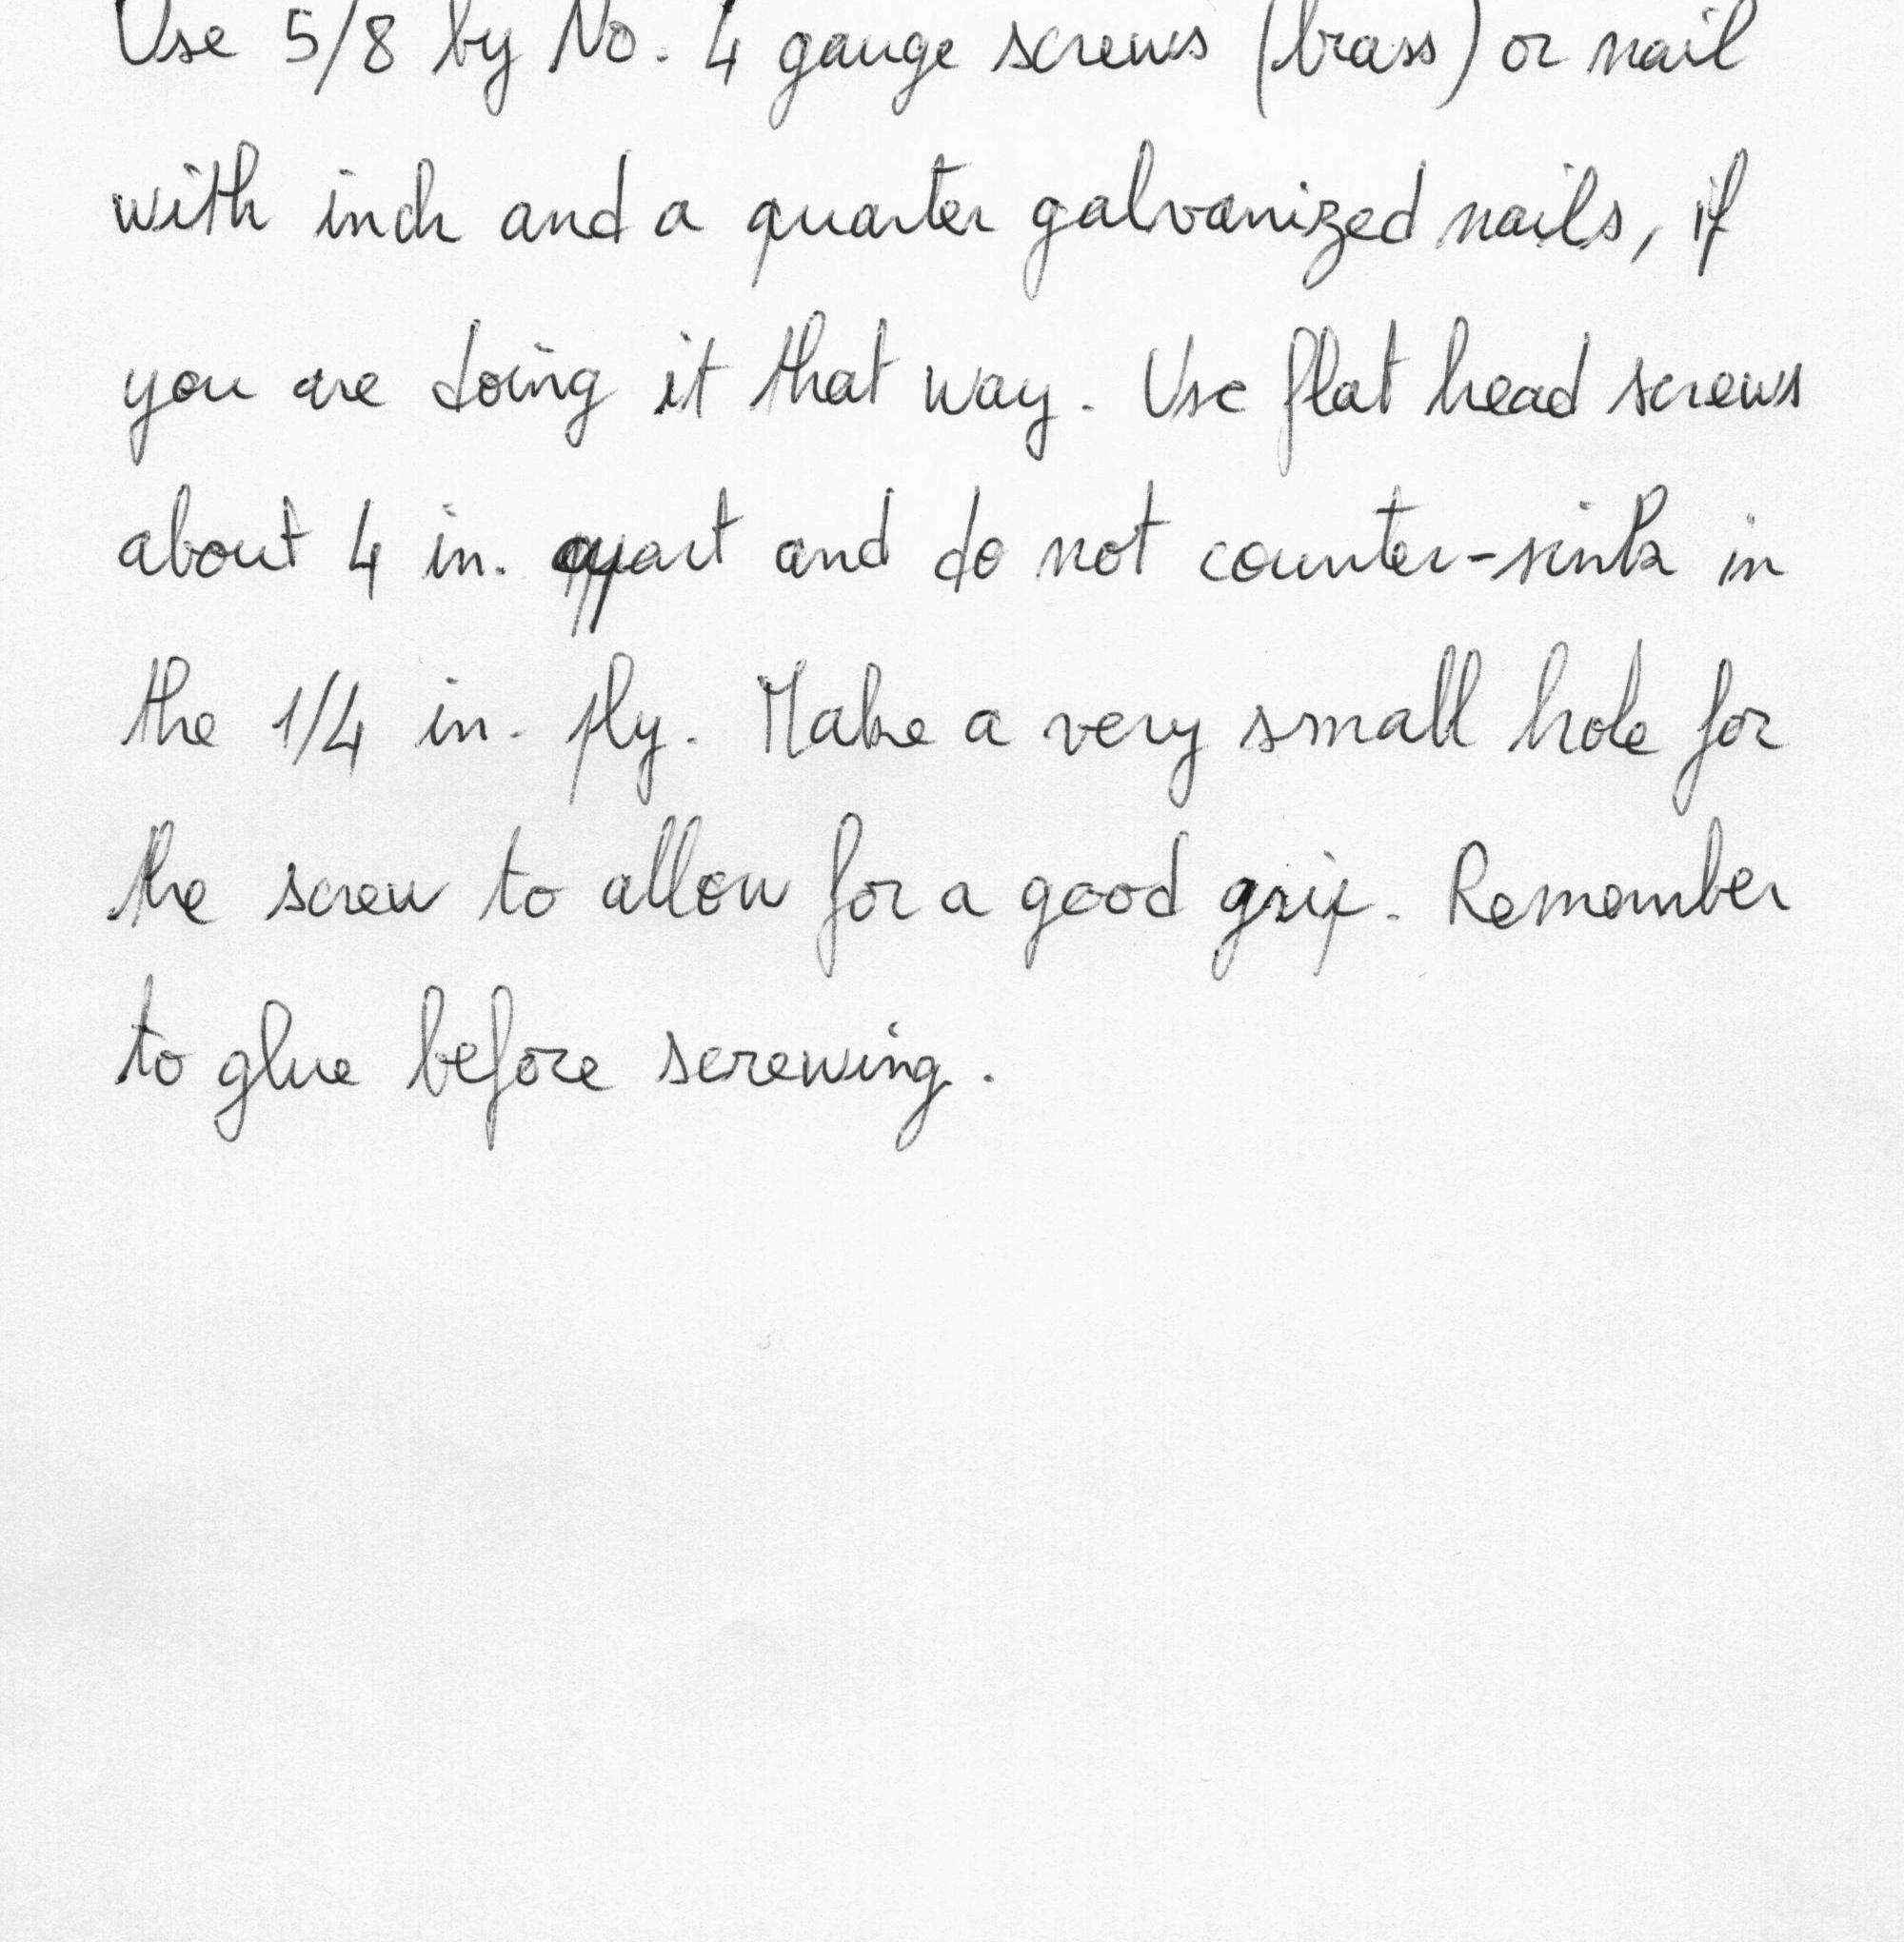 Use 5/8 by No. 4 gauge screws (brass) or nail
with inch and a quarter galvanized nails, if
you are doing it that way. Use flat head screws
about 4 in. apart and do not counter-sink in
the 1/4 in. ply. Make a very small hole for
the screw to allow for a good grip. Remember
to glue before screwing.